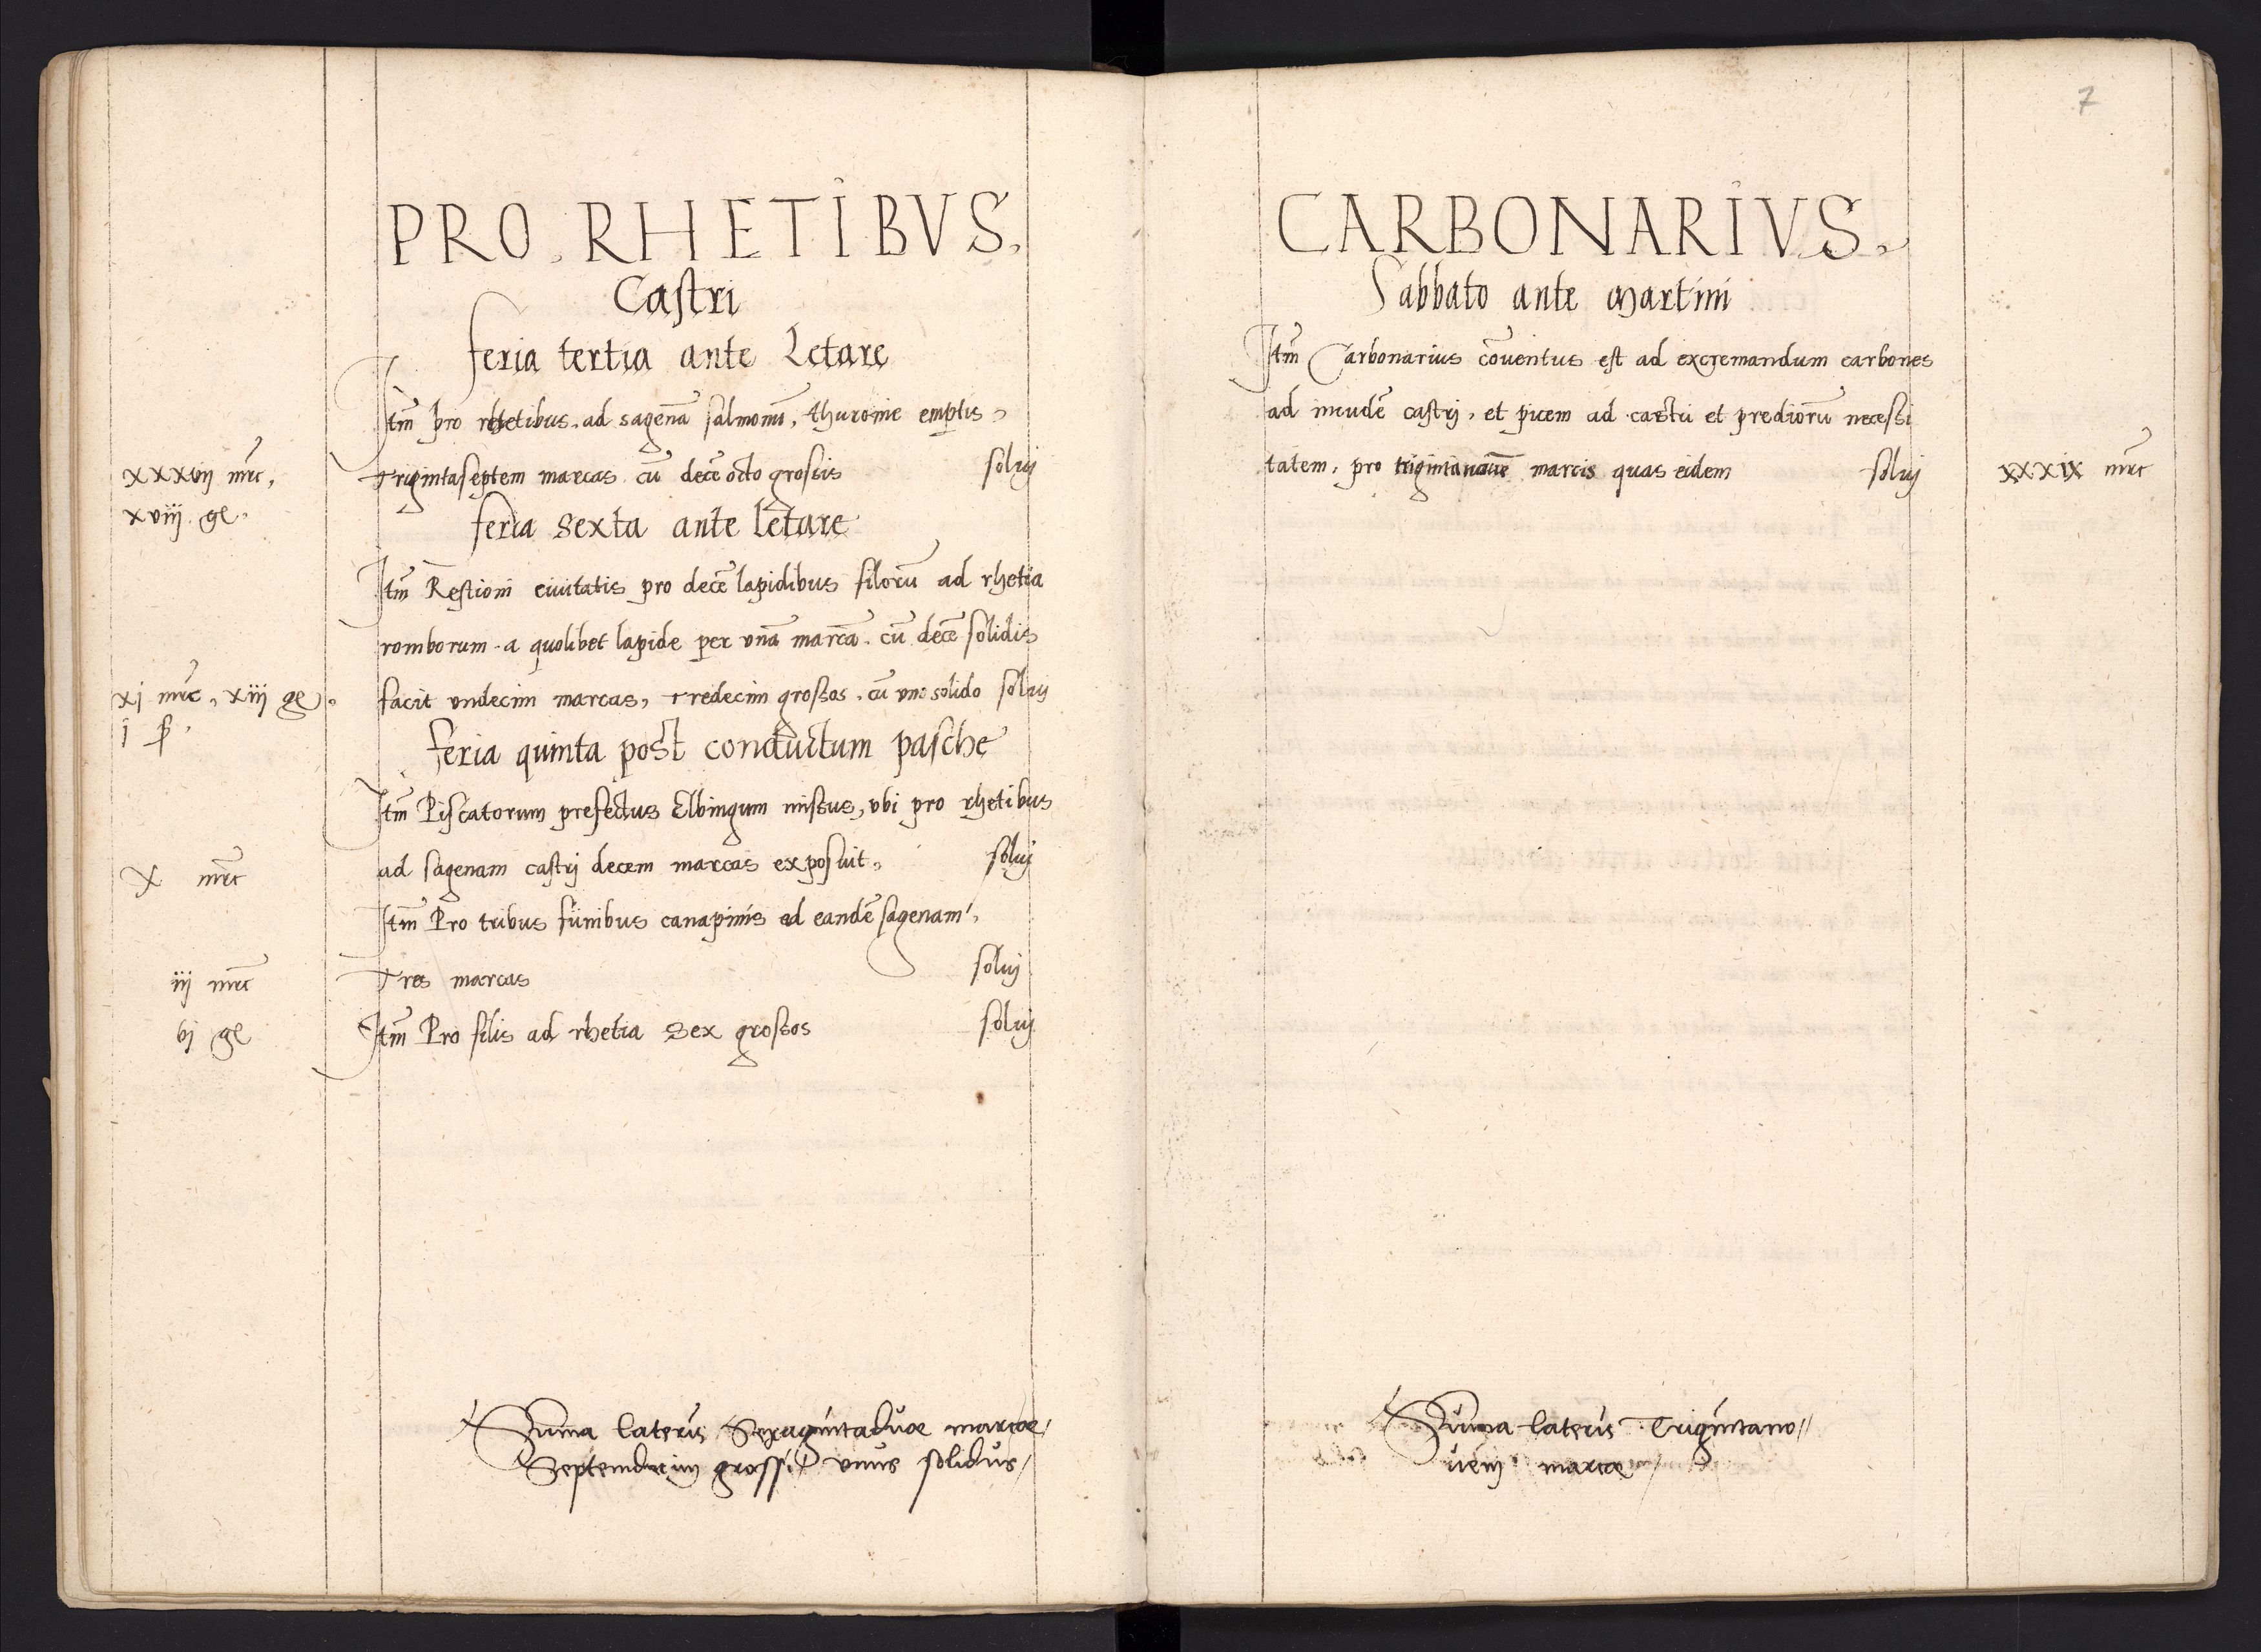 PRO. RHETIBVS.
Castri
feria tertia ante Letare
Itm̃ pro rhetibus. ad sagenā salmonū, thuronie emptis,
xxxvij mrc, Trigintaseptem marcas cū decē octo grossis soluj
xviij. gr.
feria Sexta ante letare
Itm̃ Restioni ciuitatis pro decē lapidibus filorū ad rhetia
romborum. a quolibet lapide per vnā marcā. cū decē solidis
xj mrc, xiij gr. facit vndecim marcas, Tredecim grossos. cū vno solido soluj
j ß.
feria quinta post conductum pasche
Itm̃ Piscatorum prefectus Elbingum missus, vbi pro rhetibus
ad sagenam castrj decem marcas exposuit, soluj
x mrc
Itm̃ Pro tribus funibus canapinis ad eandē sagenam,
iij mrc Tres marcas soluj
vj gr Itm̃ Pro filis ad rhetia Sex grossos soluj
Suma lateris Sexagintaduae marcae
Septemdecim grossi vnus solidus
7
CARBONARIVS.
Sabbato ante Martini
Itm̃ Carbonarius cōuentus est ad excremandum carbones
ad incudē castrj, et picem ad castri et prediorū necessi
tatem, pro trigintanouē marcis quas eidem soluj xxxix mrc
Suma lateris Trigintano
uem marcae